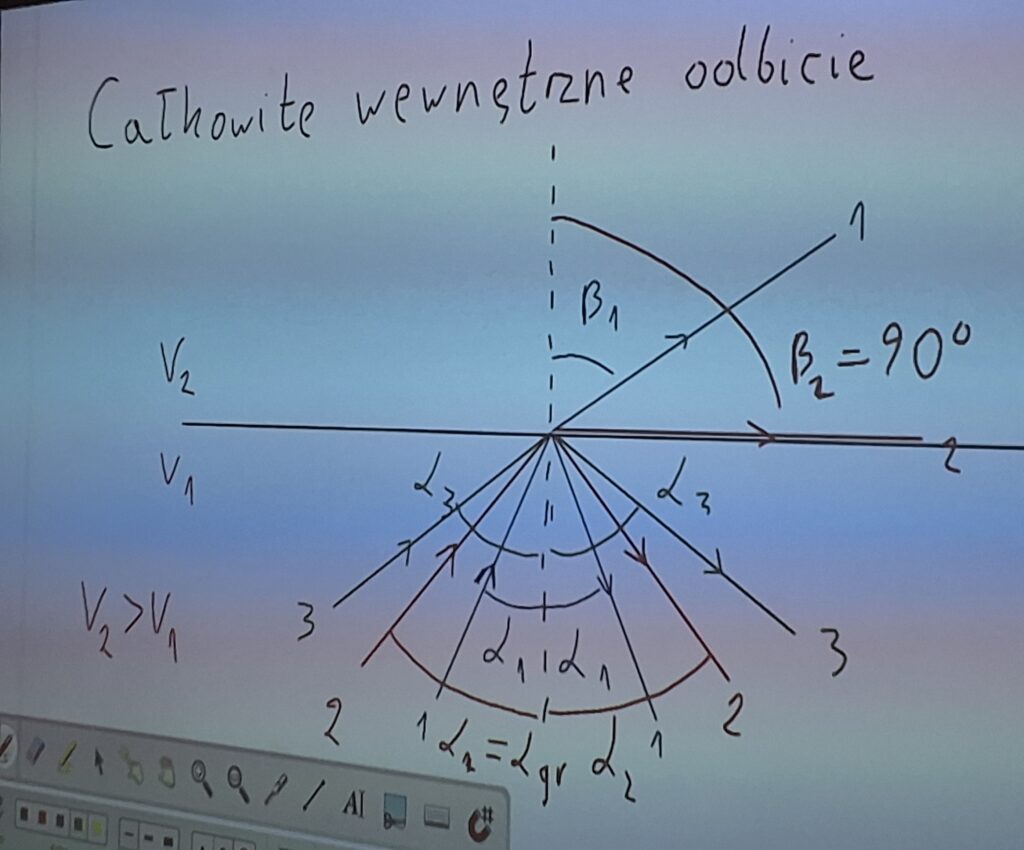 Całkowite wewnętrzne odbicie
1
β₁
β₂ = 90°
V₂
2
V₁
α₃ α₃
V₂ > V₁
3 3
α₁ α₁
2 1 1 2
α₂ = αgr α₂
AI